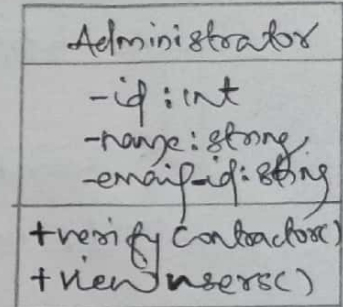 Administrator
-id : int
-name : string
-email-id : string
+verify Contractor()
+view users()